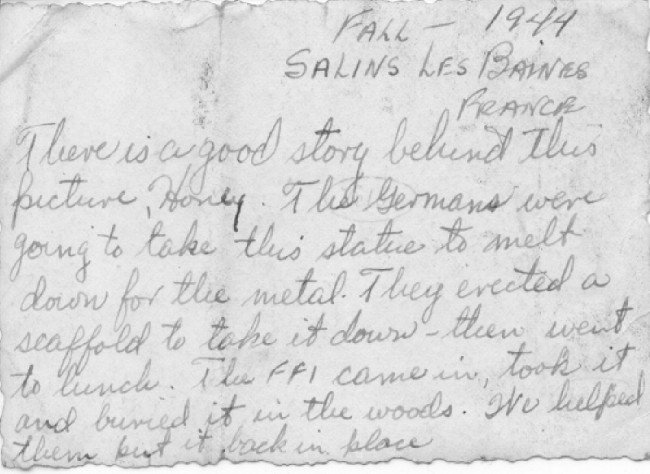 FALL - 1944
SALINS LES BAINES
FRANCE
There is a good story behind this
picture, Honey. The Germans were
going to take this statue to melt
down for the metal. They erected a
scaffold to take it down - then went
to lunch. The FFI came in, took it
and buried it in the woods. We helped
them put it back in place